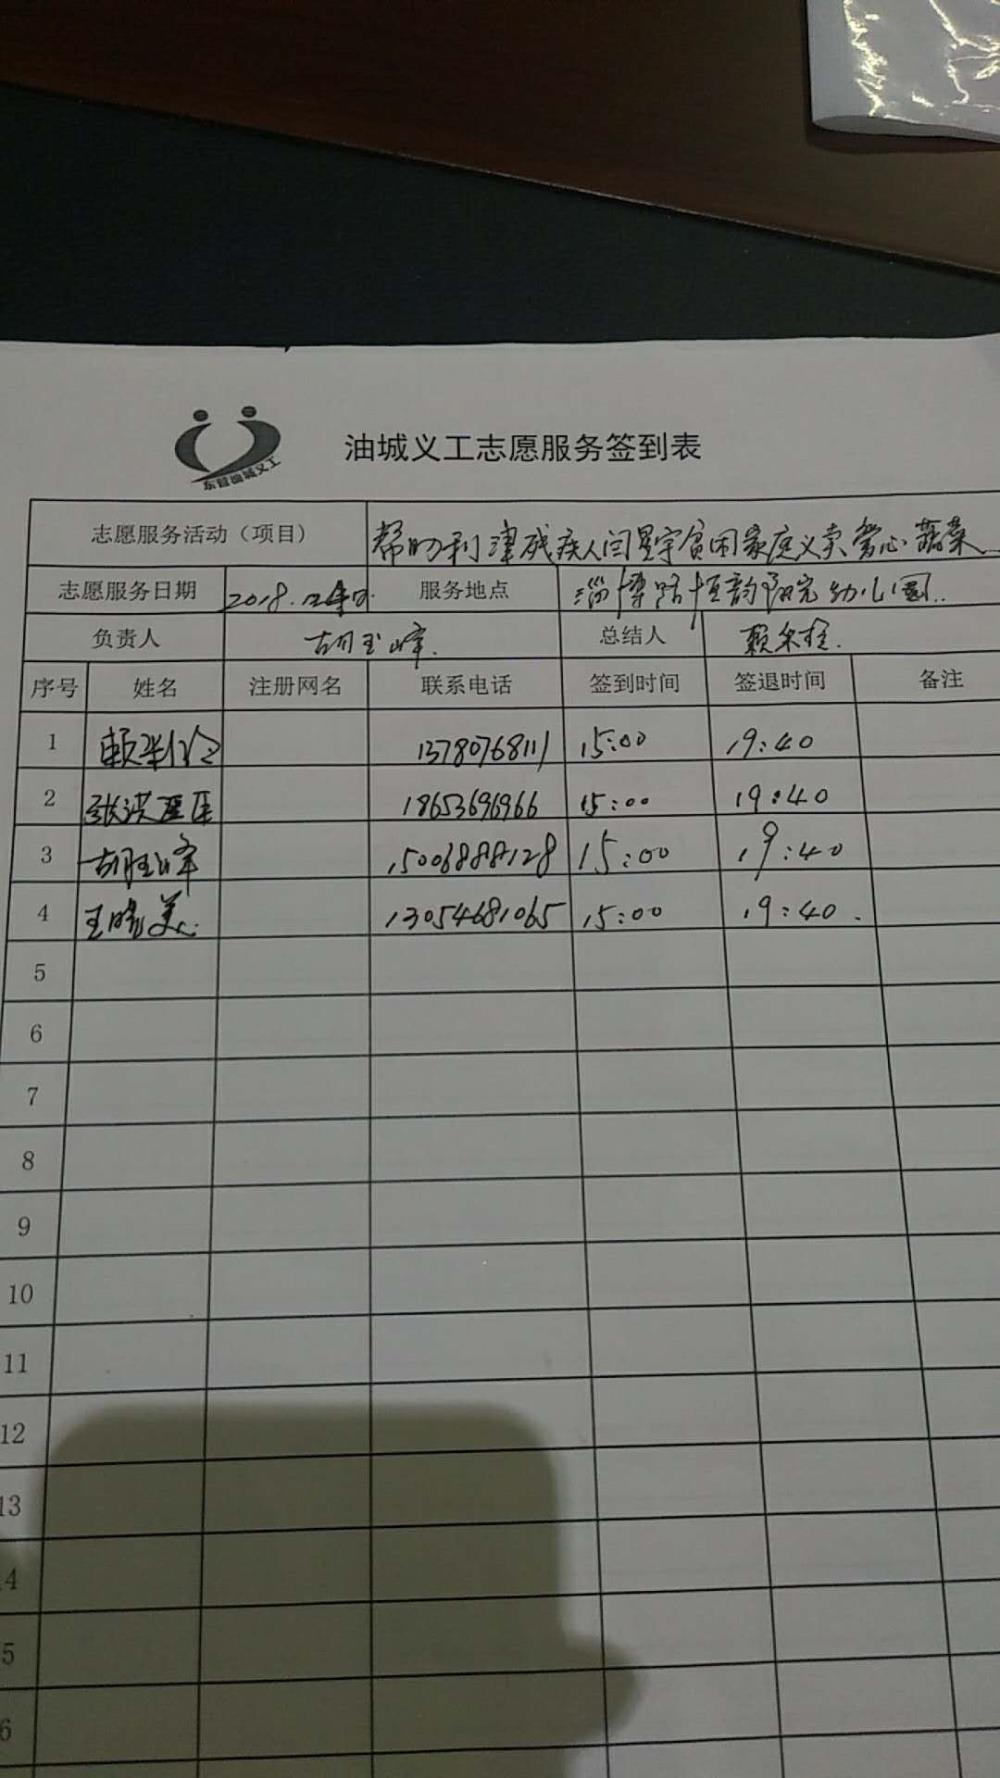 东营油城义工
油城义工志愿服务签到表
志愿服务活动（项目） 帮助利津残疾人闫星宇贫困家庭义卖爱心蔬菜
志愿服务日期 2018.12 服务地点 淄博路恒韵阳光幼儿园.
负责人 胡玉峰. 总结人 赖
序号 姓名 注册网名 联系电话 签到时间 签退时间 备注
1 赖 13780768111 15:00 19:40
2 张洪 18653696966 15:00 19:40
3 胡玉峰 15006888128 15:00 19:40
4 王晓美 13054681065 15:00 19:40.
5
6
7
8
9
10
11
12
13
4
5
6